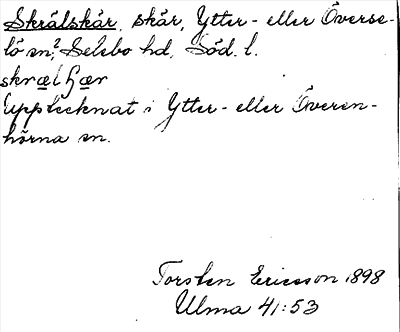 Skrälskär, skär, Ytter- eller Överse-
lö sn?, Selebo hd, Söd. l.
skrælʃær
Upptecknat i Ytter- eller Överen-
hörna sn.
Torsten Ericsson 1898
Ulma 41:53